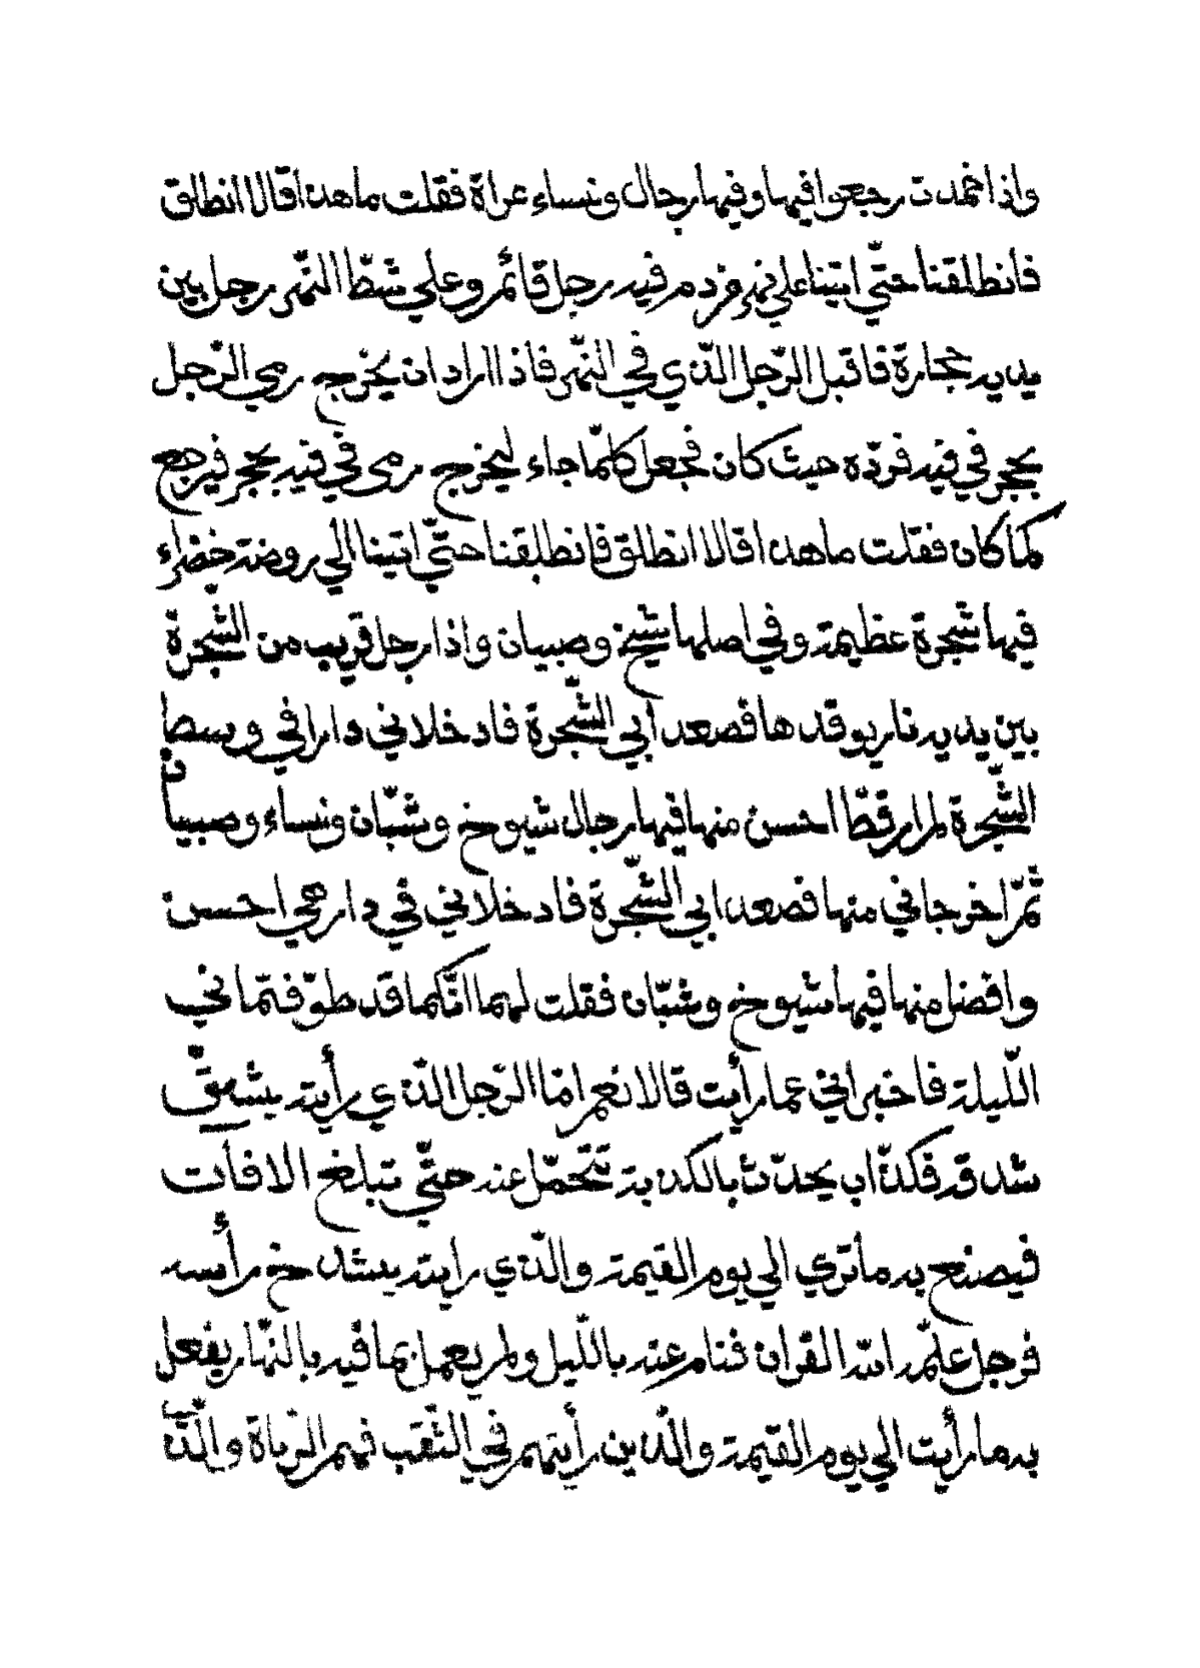 واذا خمدت رجعوا فيها وفيها رجال ونساء عراة فقلت ما هذا قالا انطلق
فانطلقنا حتّي اتينا علي نهر من دم فيه رجل قائم وعلي شطّ النّهر رجل بين
يديه حجارة فاقبل الرّجل الّذي في النّهر فاذا اراد ان يخرج رمي الرّجل
بحجر في فيه فردّه حيث كان فجعل كلّما جاء ليخرج رمى في فيه بحجر فيرجع
كما كان فقلت ما هذا قالا انطلق فانطلقنا حتّي اتينا الي روضة خضراء
فيها شجرة عظيمة وفي اصلها شيخ وصبيان واذا رجل قريب من الشّجرة
بين يديه نار يوقدها فصعدا بي الشّجرة فادخلاني دارا في وسط
الشّجرة لم ار قطّ احسن منها فيها رجال شيوخ وشبّان ونساء وصبيان
ثمّ اخرجاني منها فصعدا بي الشّجرة فادخلاني في دار هي احسن
وافضل منها فيها شيوخ وشبّان فقلت لهما انّكما قد طوّفتماني
اللّيلة فاخبراني عما رأيت قالا نعم امّا الرّجل الّذي رأيته يشقّ
شدقه فكذّاب يحدّث بالكذبة تتحمّل عنه حتّي تبلغ الافات
فيصنع به ما تري الي يوم القيمة والّذي رايته يشدخ رأسه
فرجل علّمه الله القران فنام عنه باللّيل ولم يعمل بما فيه بالنّهار يفعل
به ما رأيت الي يوم القيمة والّذين رأيتهم في الثّقب فهم الزّناة والّذي